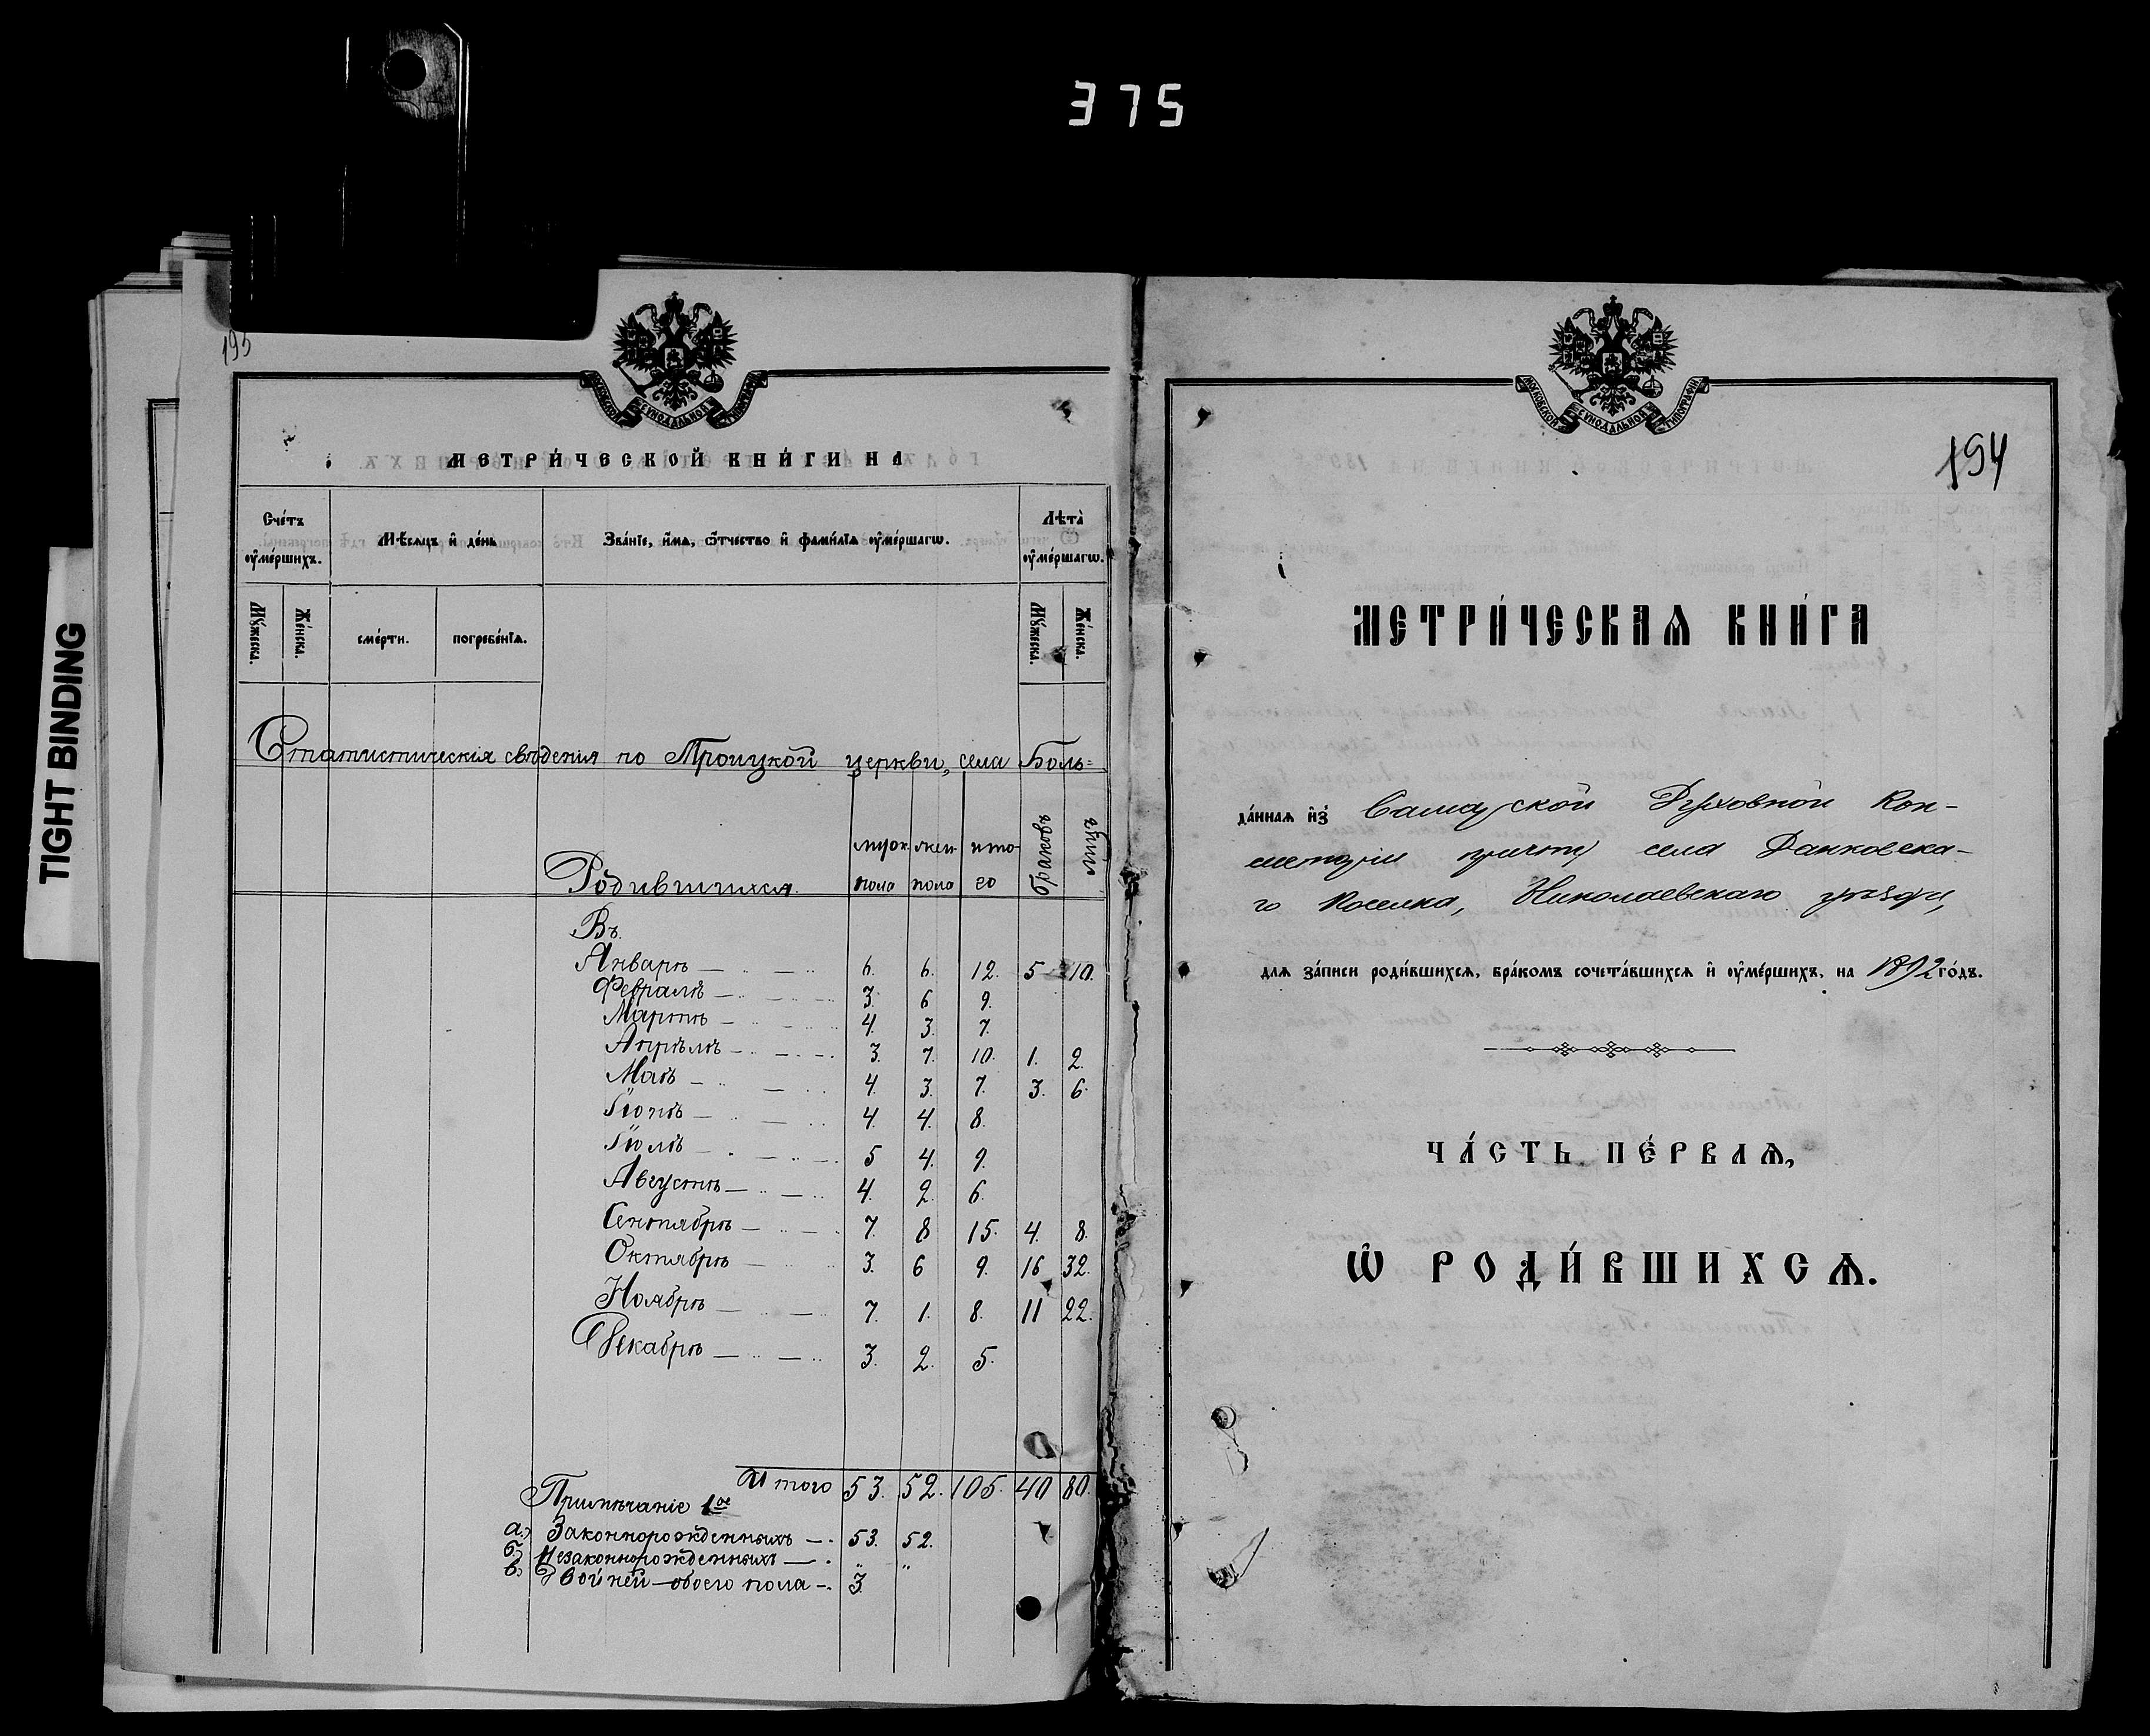 375
TIGHT BINDING
193
МОСКОВСКОЙ СѴНОДАЛЬНОЙ ТИПОГРАФІИ
МЕТРИ́ЧЕСКОЙ КНИ́ГИ НА
Сче́тъ ᲂу҆ме́ршихъ.
Мѣ́сяцъ и҆ де́нь
Зва́нїе, и҆́мѧ, ѻ҆́тчество и҆ фами́лїѧ ᲂу҆ме́ршагѡ.
Лѣта̀ ᲂу҆ме́ршагѡ.
Мꙋ́жеска.
Же́нска.
сме́рти.
погребе́нїѧ.
Мꙋ́жеска.
Же́нска.
Статистическія свѣденія по Троицкой церкви, села Боль=
Родившихся. муж. пола жен. пола итого браковъ лицъ
Въ
Январѣ — 6. 6. 12. 5 10.
Февралѣ — 3. 6 9.
Мартѣ — 4. 3. 7.
Апрѣлѣ — 3. 7. 10. 1. 2.
Маѣ — 4. 3. 7. 3. 6.
Іюнѣ — 4. 4. 8.
Іюлѣ — 5 4. 9.
Августѣ — 4. 2. 6.
Сентябрѣ — 7. 8 15. 4. 8.
Октябрѣ — 3. 6 9. 16 32.
Ноябрѣ — 7. 1. 8. 11 22.
Декабрѣ — 3. 2. 5.
Итого 53. 52. 105. 40 80.
Примѣчаніе 1ое
а) Законнорожденныхъ — 53. 52.
б) Незаконнорожденныхъ — " "
в) Двойней — обоего пола — 3.
МОСКОВСКОЙ СѴНОДАЛЬНОЙ ТИПОГРАФІИ
194
МЕТРИ́ЧЕСКАѦ КНИ́ГА
да́ннаѧ и҆з̾ Самарской Духовной Кон-
систоріи причту села Данковска-
го Поселка, Николаевскаго уѣзда,
длѧ за́писи роди́вшихсѧ, бра́комъ сочета́вшихсѧ и҆ ᲂу҆ме́ршихъ, на 1892 го́дъ.
ЧА́СТЬ ПЕ́РВАѦ,
Ѡ҆ РОДИ́ВШИХСѦ.